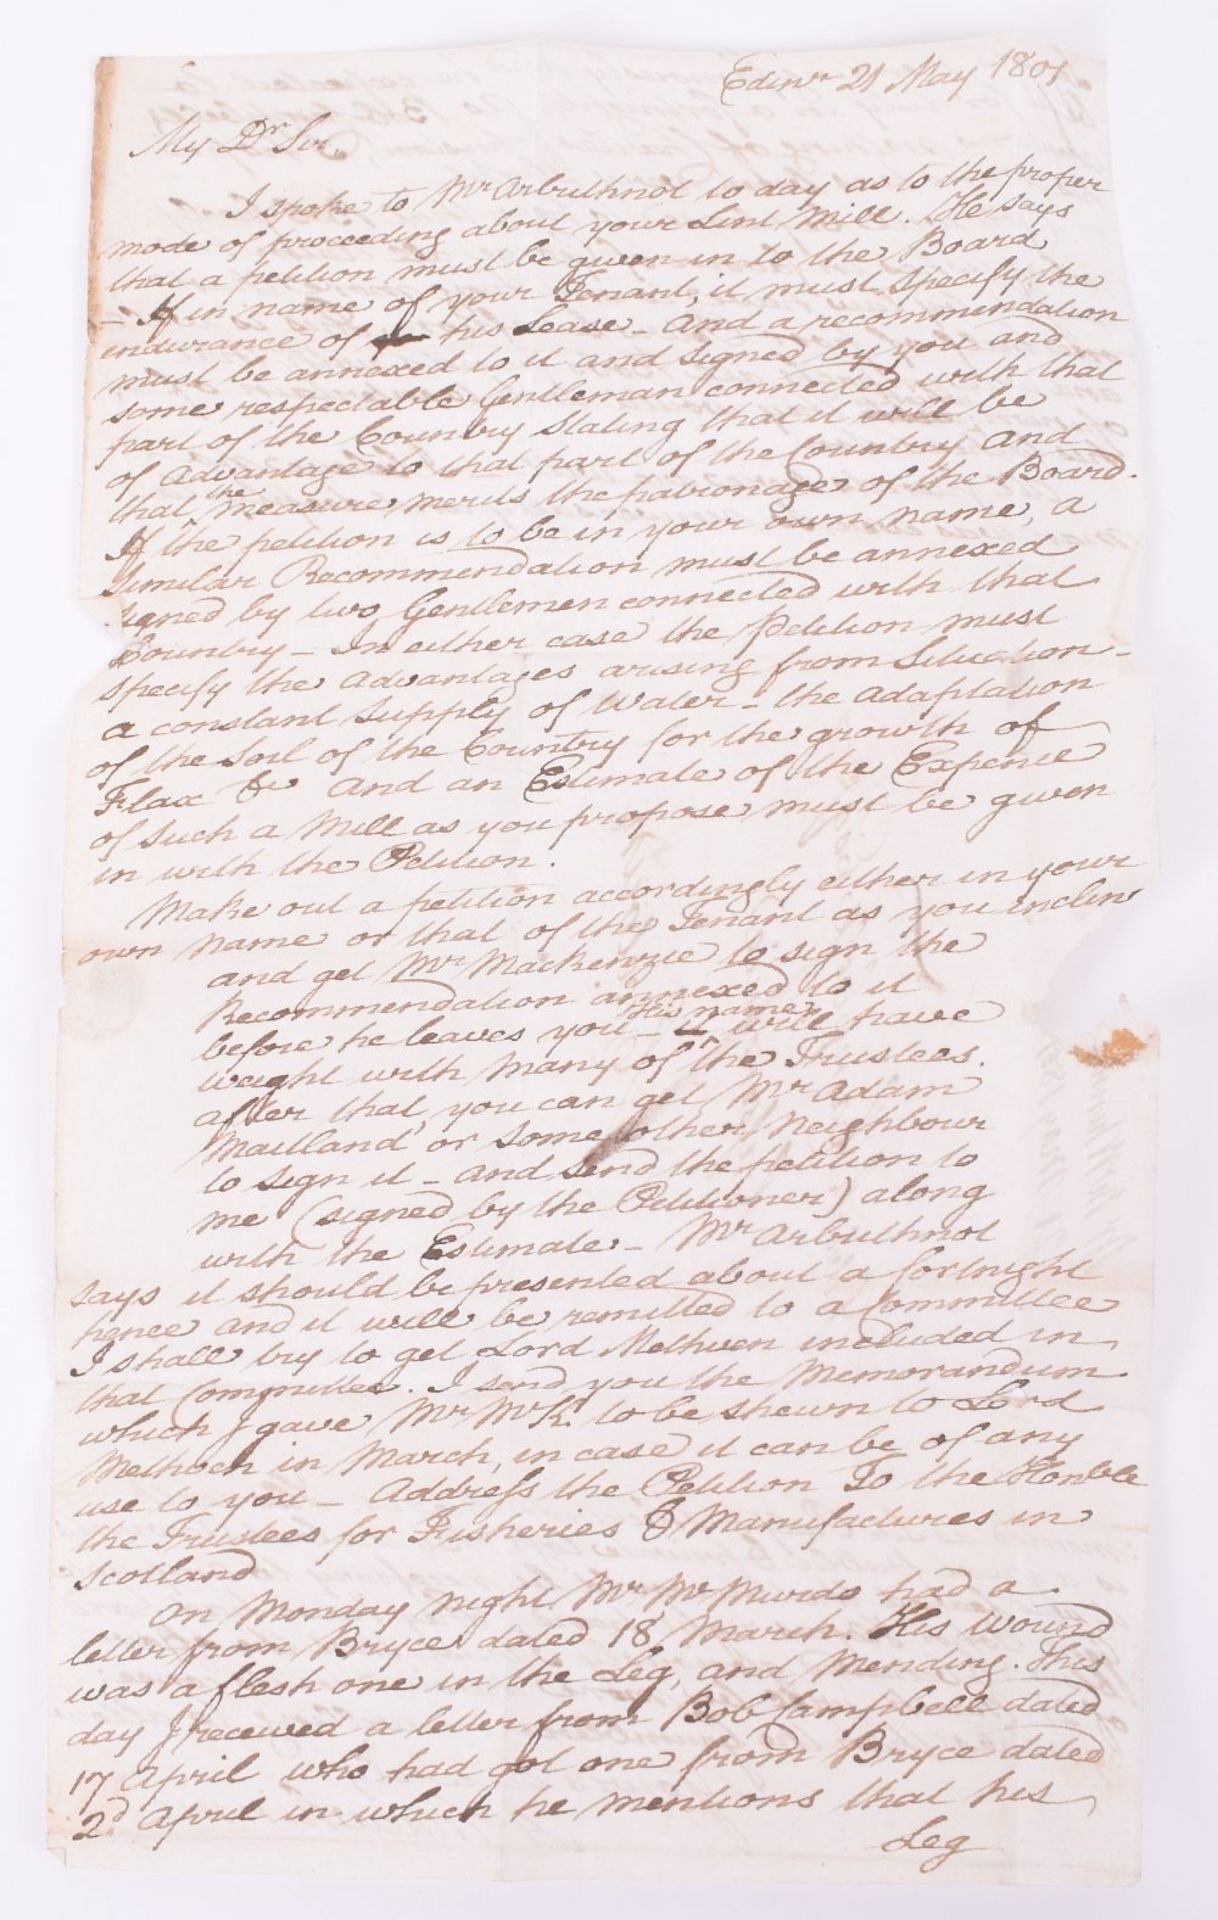 Edinr 21 May 1801
My Dr Sir,
I spoke to Mr Arbuthnot to day as to the proper
mode of proceeding about your Lint Mill. He says
that a petition must be given in to the Board
- If in name of your Tenant, it must specify the
endurance of his Lease - And a recommendation
must be annexed to it and signed by you and
some respectable Gentleman connected with that
part of the Country stating that it will be
of Advantage to that part of the Country and
that the measure merits the patronage of the Board.
If the petition is to be in your own name, a
similar Recommendation must be annexed
signed by two Gentlemen connected with that
Country - In either case the Petition must
specify the Advantages arising from Situation -
a constant supply of Water - the adaptation
of the Soil of the Country for the growth of
Flax &c And an Estimate of the Expence
of such a Mill as you propose must be given
in with the Petition.
Make out a petition accordingly either in your
own name or that of the Tenant as you incline
and get Mr Mackenzie to sign the
Recommendation annexed to it
before he leaves you - His name will have
weight with many of the Trustees.
after that, you can get Mr Adam
Maitland or some other Neighbour
to sign it - and send the petition to
me (signed by the Petitioner) along
with the Estimate - Mr Arbuthnot
says it should be presented about a fortnight
hence and it will be remitted to a Committee
I shall try to get Lord Methven included in
that Committee. I send you the Memorandum
which I gave Mr McK. to be shewn to Lord
Methven in March, in case it can be of any
use to you - Address the Petition To the Honble
the Trustees for Fisheries & Manufactures in
Scotland
On Monday night Mr McMurdo had a
letter from Bryce dated 18 March. His Wound
was a flesh one in the Leg, and Mending. This
day I received a letter from Bob Campbell dated
17 April who had got one from Bryce dated
2d April in which he mentions that his
Leg